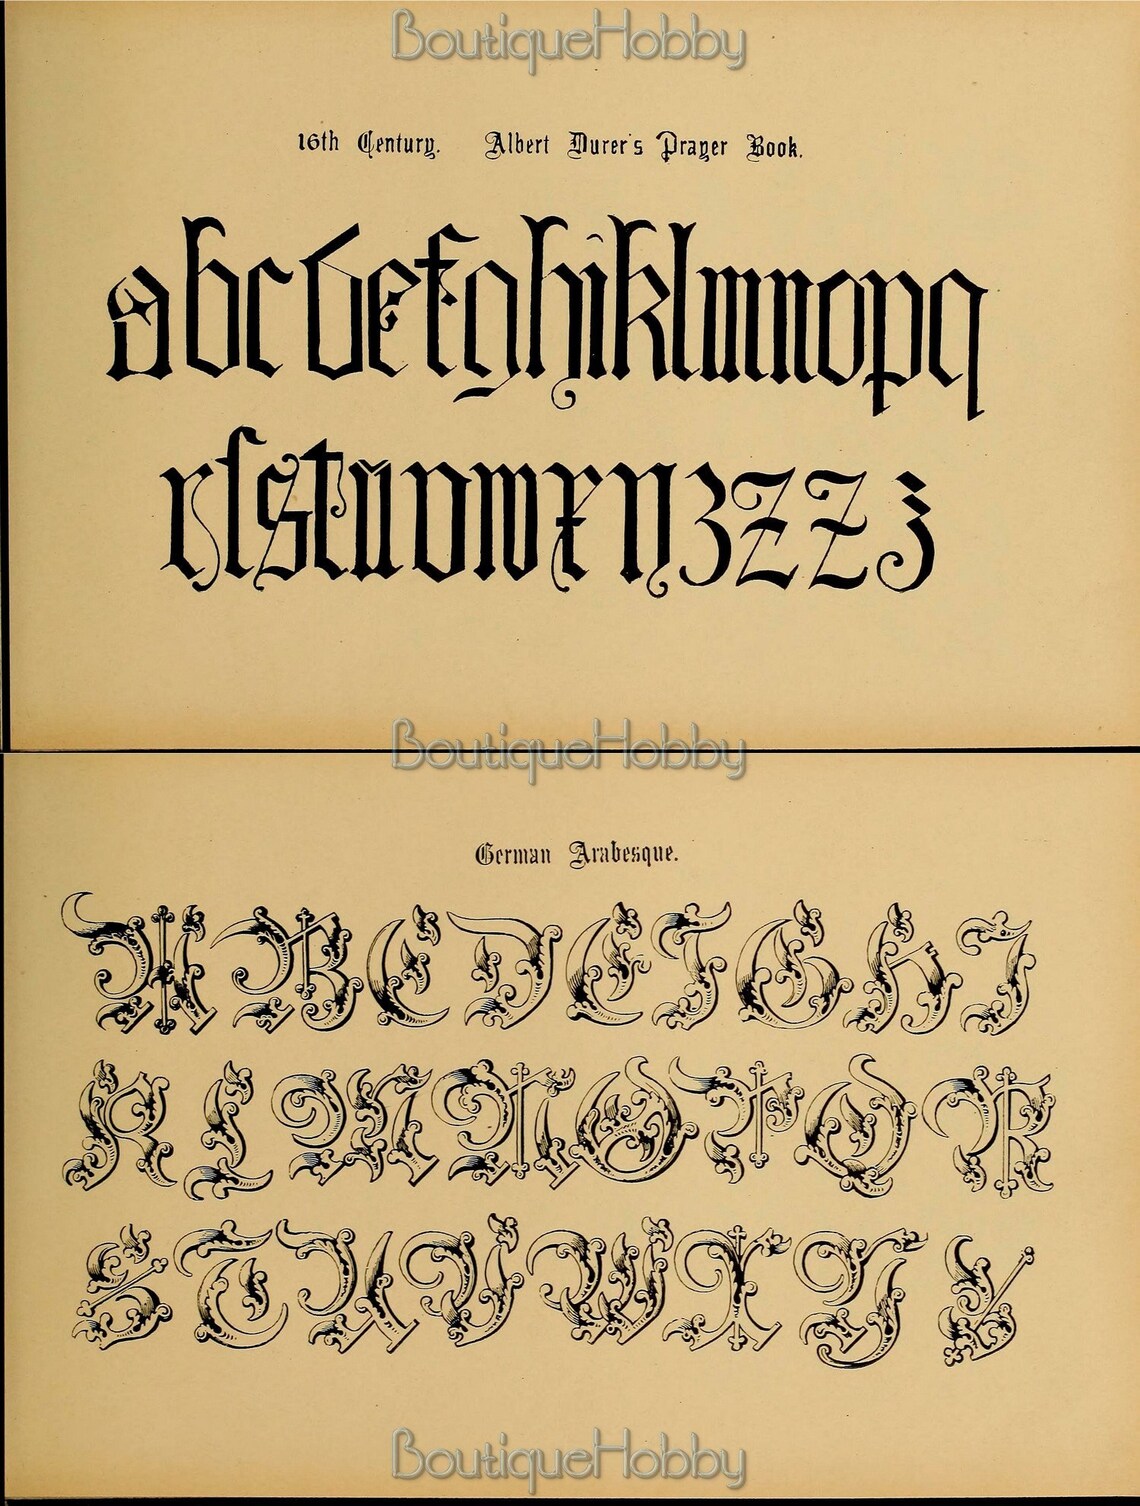 BoutiqueHobby
16th Century. Albert Durer's Prayer Book.
abcdefghiklmnopq
rſstuvwxyzzzz
BoutiqueHobby
German Arabesque.
ABCDEFGHI
KLMNOPQR
STUVWXYZ
BoutiqueHobby